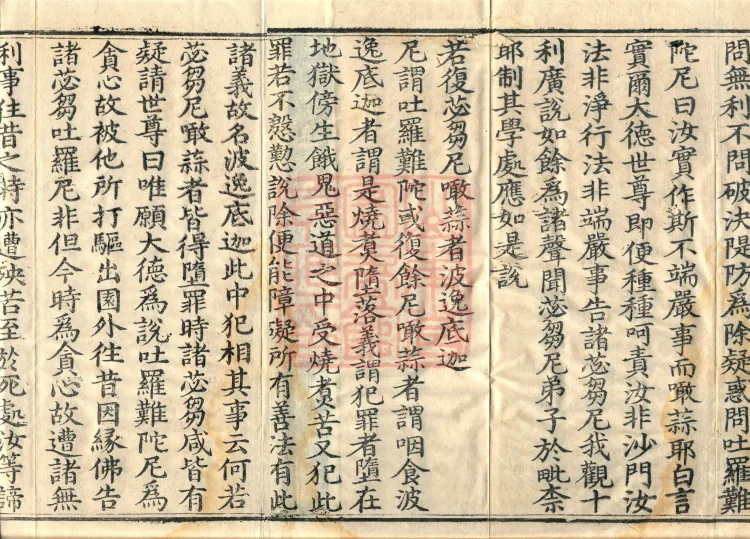 問無利不問破決隄防為除疑惑問吐羅難
陀尼曰汝實作斯不端嚴事而噉蒜耶白言
實爾大德世尊即便種種呵責汝非沙門汝
法非淨行法非端嚴事告諸苾芻尼我觀十
利廣說如餘為諸聲聞苾芻尼弟子於毗柰
耶制其學處應如是說
若復苾芻尼噉蒜者波逸底迦
尼謂吐羅難陀或復餘尼噉蒜者謂咽食波
逸底迦者謂是燒煑墮落義謂犯罪者墮在
地獄傍生餓鬼惡道之中受燒煑苦又犯此
罪若不慇懃說除便能障礙所有善法有此
諸義故名波逸底迦此中犯相其事云何若
苾芻尼噉蒜者皆得墮罪時諸苾芻咸皆有
疑請世尊曰唯願大德為說吐羅難陀尼為
貪心故被他所打驅出園外往昔因緣佛告
諸苾芻吐羅尼非但今時為貪心故遭諸無
利事往昔之時亦遭殃苦至於死處汝等諦